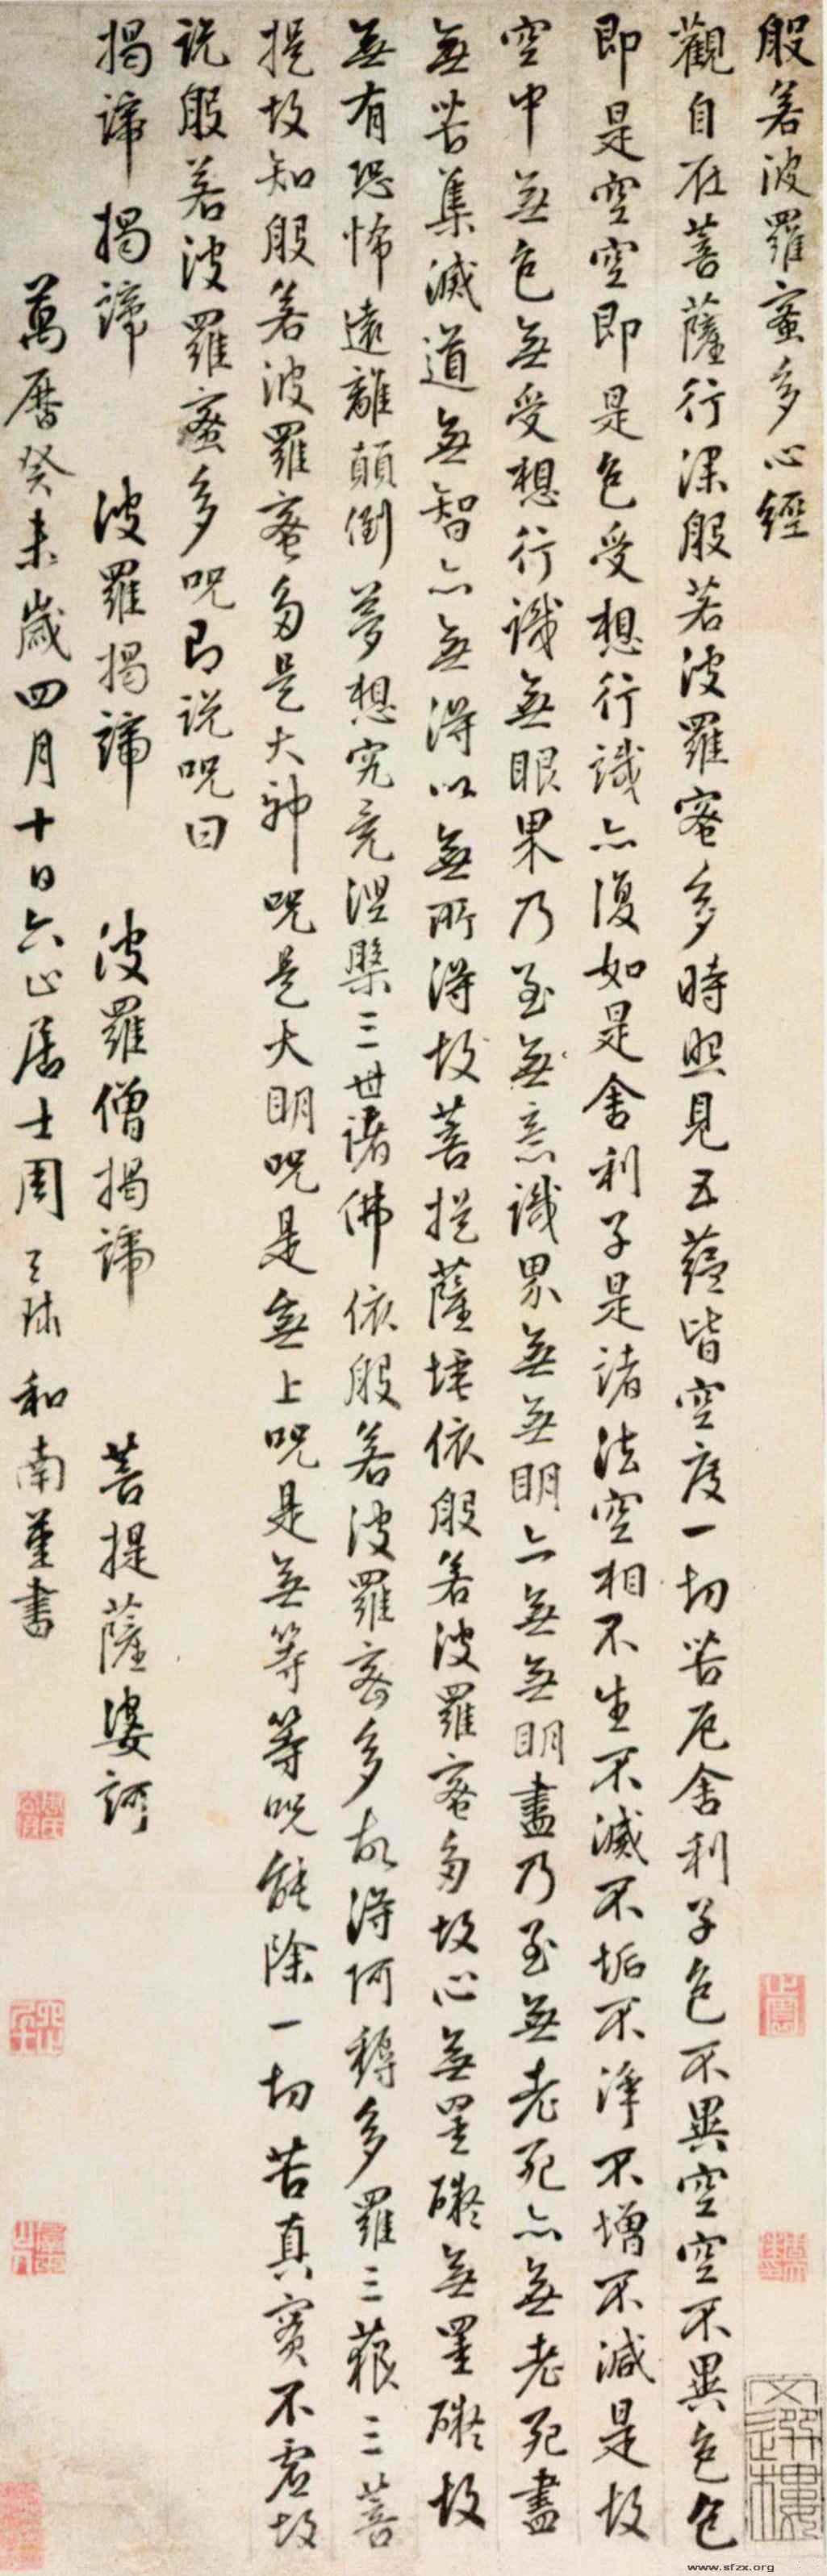 般若波羅蜜多心經
觀自在菩薩行深般若波羅蜜多時照見五蘊皆空度一切苦厄舍利子色不異空空不異色色
即是空空即是色受想行識亦復如是舍利子是諸法空相不生不滅不垢不淨不增不減是故
空中無色無受想行識無眼果乃至無意識界無無明亦無無明盡乃至無老死亦無老死盡
無苦集滅道無智亦無得以無所得故菩提薩埵依般若波羅蜜多故心無罣礙無罣礙故
無有恐怖遠離顛倒夢想究竟涅槃三世諸佛依般若波羅蜜多故得阿耨多羅三藐三菩
提故知般若波羅蜜多是大神呪是大明呪是無上呪是無等等呪能除一切苦真實不虛故
說般若波羅蜜多呪即說呪曰
揭諦揭諦 波羅揭諦 波羅僧揭諦 菩提薩婆訶
萬曆癸未歲四月十日六止居士周天球和南謹書
文選樓
www.sfzx.org